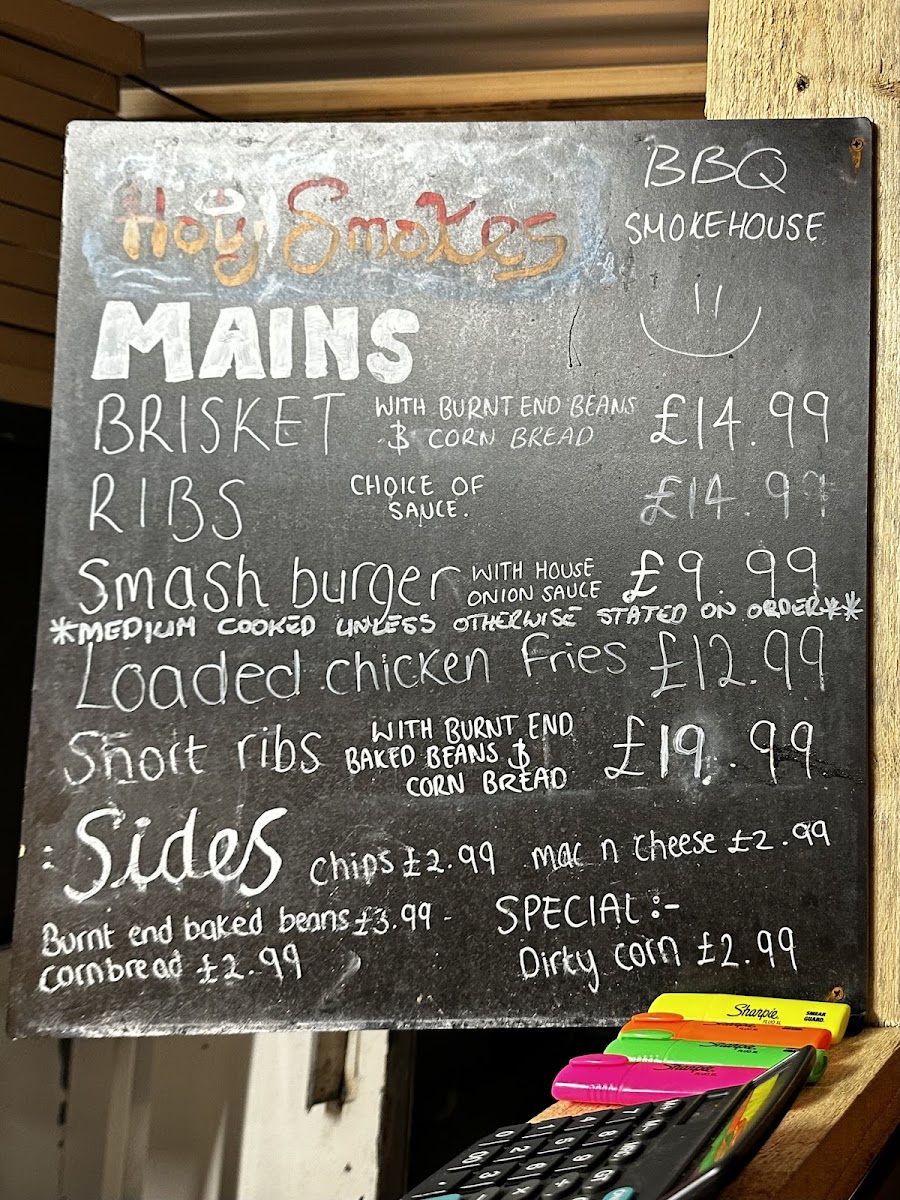 Holy Smokes
BBQ
SMOKEHOUSE
MAINS
BRISKET WITH BURNT END BEANS & CORN BREAD £14.99
RIBS CHOICE OF SAUCE. £14.99
Smash burger WITH HOUSE ONION SAUCE £9.99
*MEDIUM COOKED UNLESS OTHERWISE STATED ON ORDER**
Loaded chicken Fries £12.99
Short ribs WITH BURNT END BAKED BEANS & CORN BREAD £19.99
Sides chips £2.99 mac n cheese £2.99
Burnt end baked beans £3.99 -
cornbread £2.99
SPECIAL :-
Dirty corn £2.99
Sharpie SMEAR GUARD
Sharpie
Sharpie
Sharpie